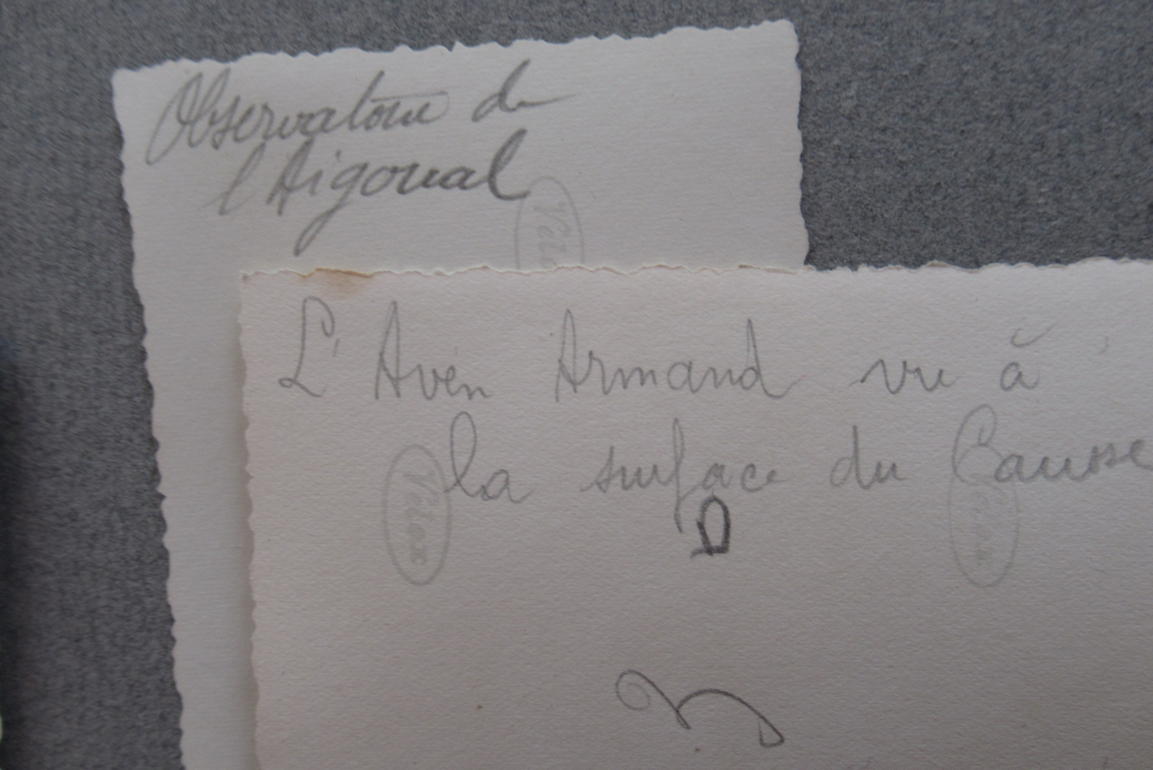 Observatoire de
l'Aigoual
L'Aven Armand vu à
la surface du Causse
Velox
Velox
D